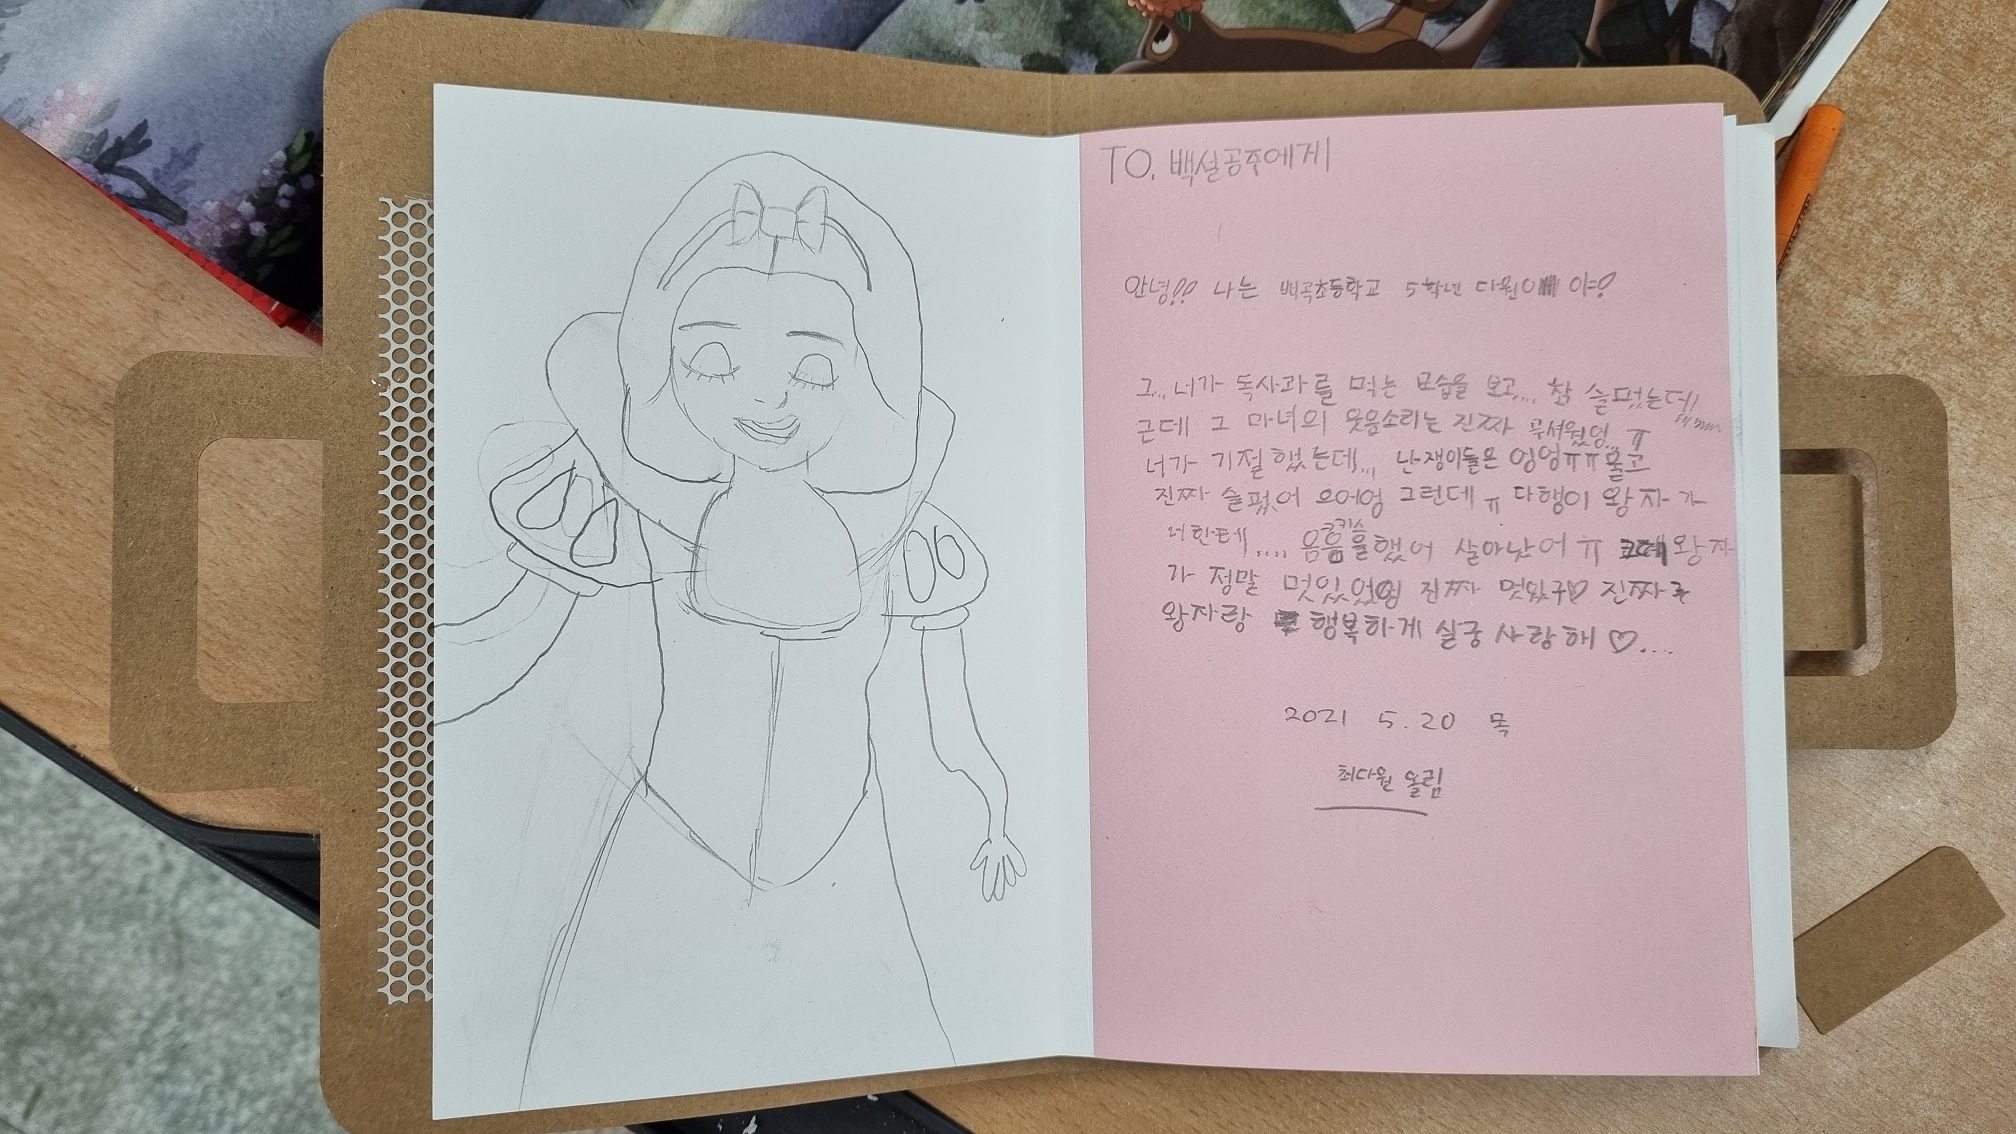 TO. 백설공주에게
안녕!! 나는 백곡초등학교 5학년 다원이 야!
그... 너가 독사과를 먹는 모습을 보고.... 참 슬펐는데
근데 그 마녀의 웃음소리는 진짜 무서웠엉.. ㅠ
너가 기절했는데... 난쟁이들은 엉엉ㅠㅠ울고
진짜 슬펐어 으어엉 그런데 ㅠ 다행이 왕자가
너한테 .... 음음을했어 살아났어 ㅠ 왕자
가 정말 멋있었엉 진짜 멋있구♡ 진짜
왕자랑 행복하게 살궁 사랑해 ♡....
2021 5.20 목
최다원 올림